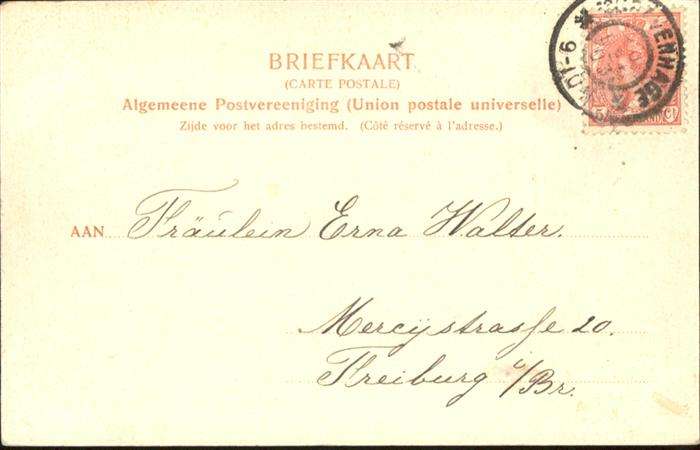 BRIEFKAART
(CARTE POSTALE)
Algemeene Postvereeniging (Union postale universelle)
Zijde voor het adres bestemd. (Côté réservé à l'adresse.)
AAN Fräulein Erna Walter.
Mercystrasse 20.
Freiburg i/Br.